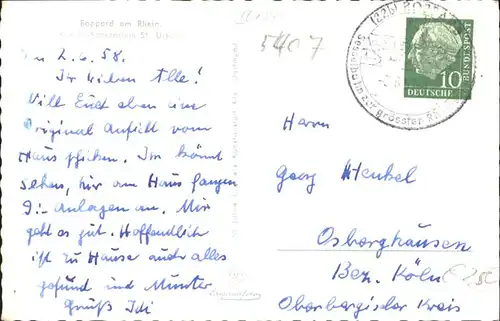 Boppard am Rhein.
St. Ursula
2.6.58.
Ihr lieben Alle!
Will Euch eben eine
Original Ansicht vom
Haus schicken. Ihr könnt
sehen, hier am Haus fangen
die Anlagen an. Mir
geht es gut. Hoffendlich
ist zu Hause auch alles
gesund und Munter.
Gruß Idi
5407
(22b) BOPPARD
Sesselbahn zur grössten
10
DEUTSCHE BUNDESPOST
Herrn
Georg Henkel
Osberghausen
Bez. Köln
Oberbergischer Kreis